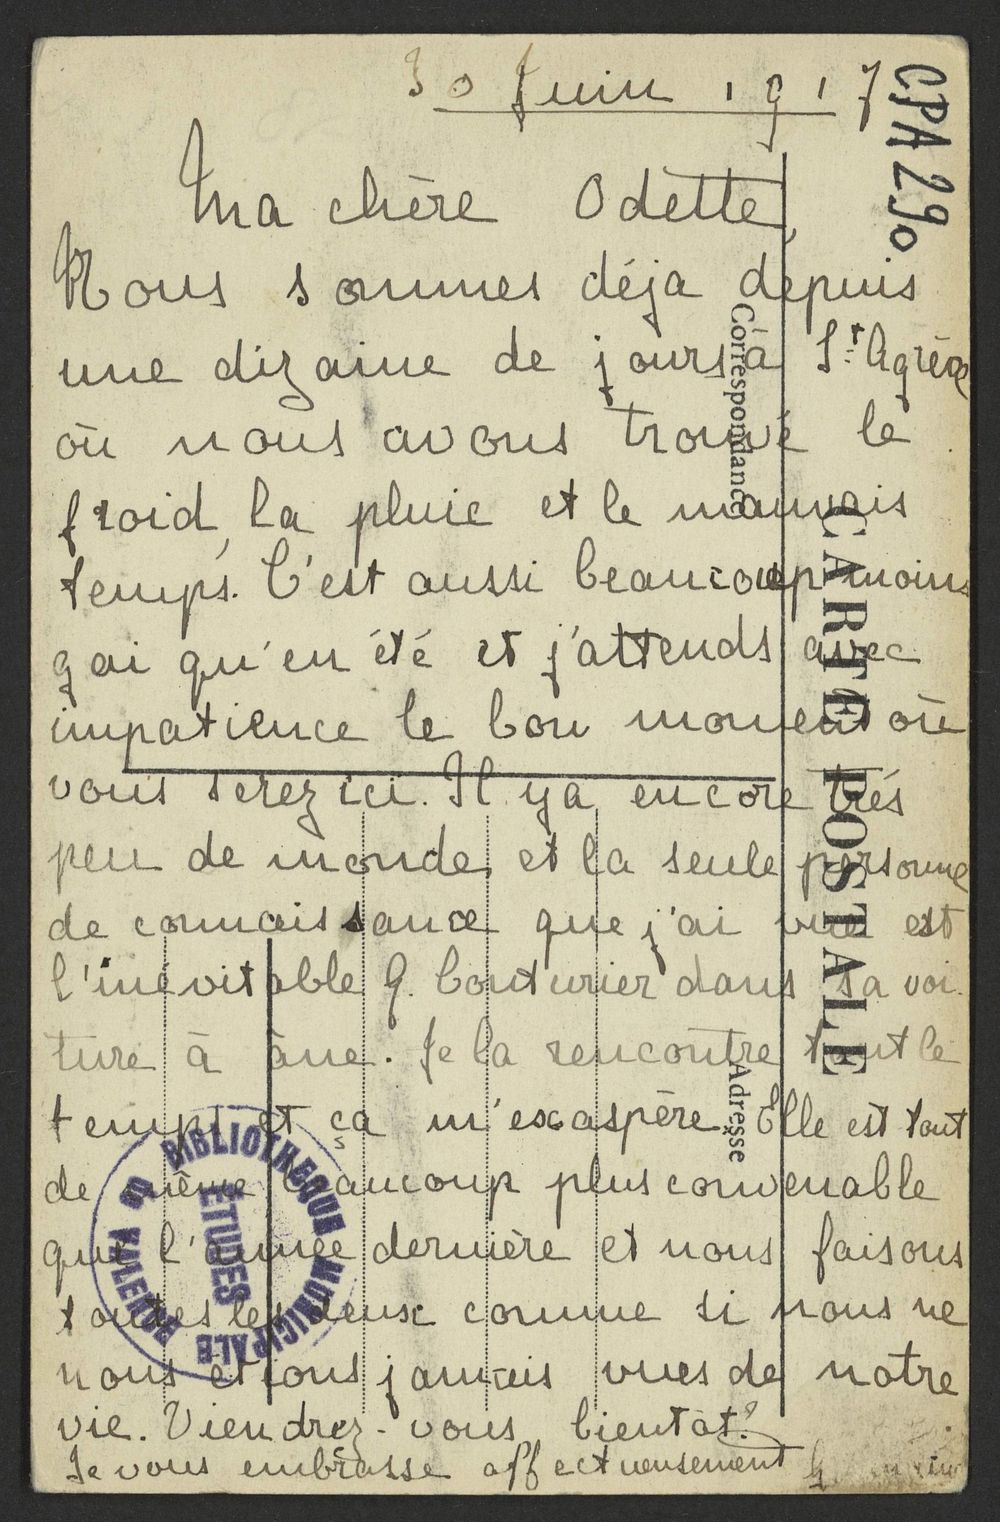 30 Juin 1917
CPA 290
Ma chère Odette,
Nous sommes déja depuis
une dizaine de jours à St. Agrève
où nous avons trouvé le
froid, la pluie et le mauvais
temps. C'est aussi beaucoup moins
gai qu'en été et j'attends avec
impatience le bon moment où
vous serez ici. Il y a encore très
peu de monde, et la seule personne
de connaissance que j'ai vue est
l'inévitable G. Couturier dans sa voi-
ture à âne. Je la rencontre tout le
temps et ça m'exaspère. Elle est tout
de même beaucoup plus convenable
que l'année dernière et nous faisons
toutes les deux comme si nous ne
nous étions jamais vues de notre
vie. Viendrez-vous bientôt?
Je vous embrasse affectueusement
Correspondance
CARTE POSTALE
Adresse
BIBLIOTHEQUE MUNICIPALE DE VALENCE
ETUDES